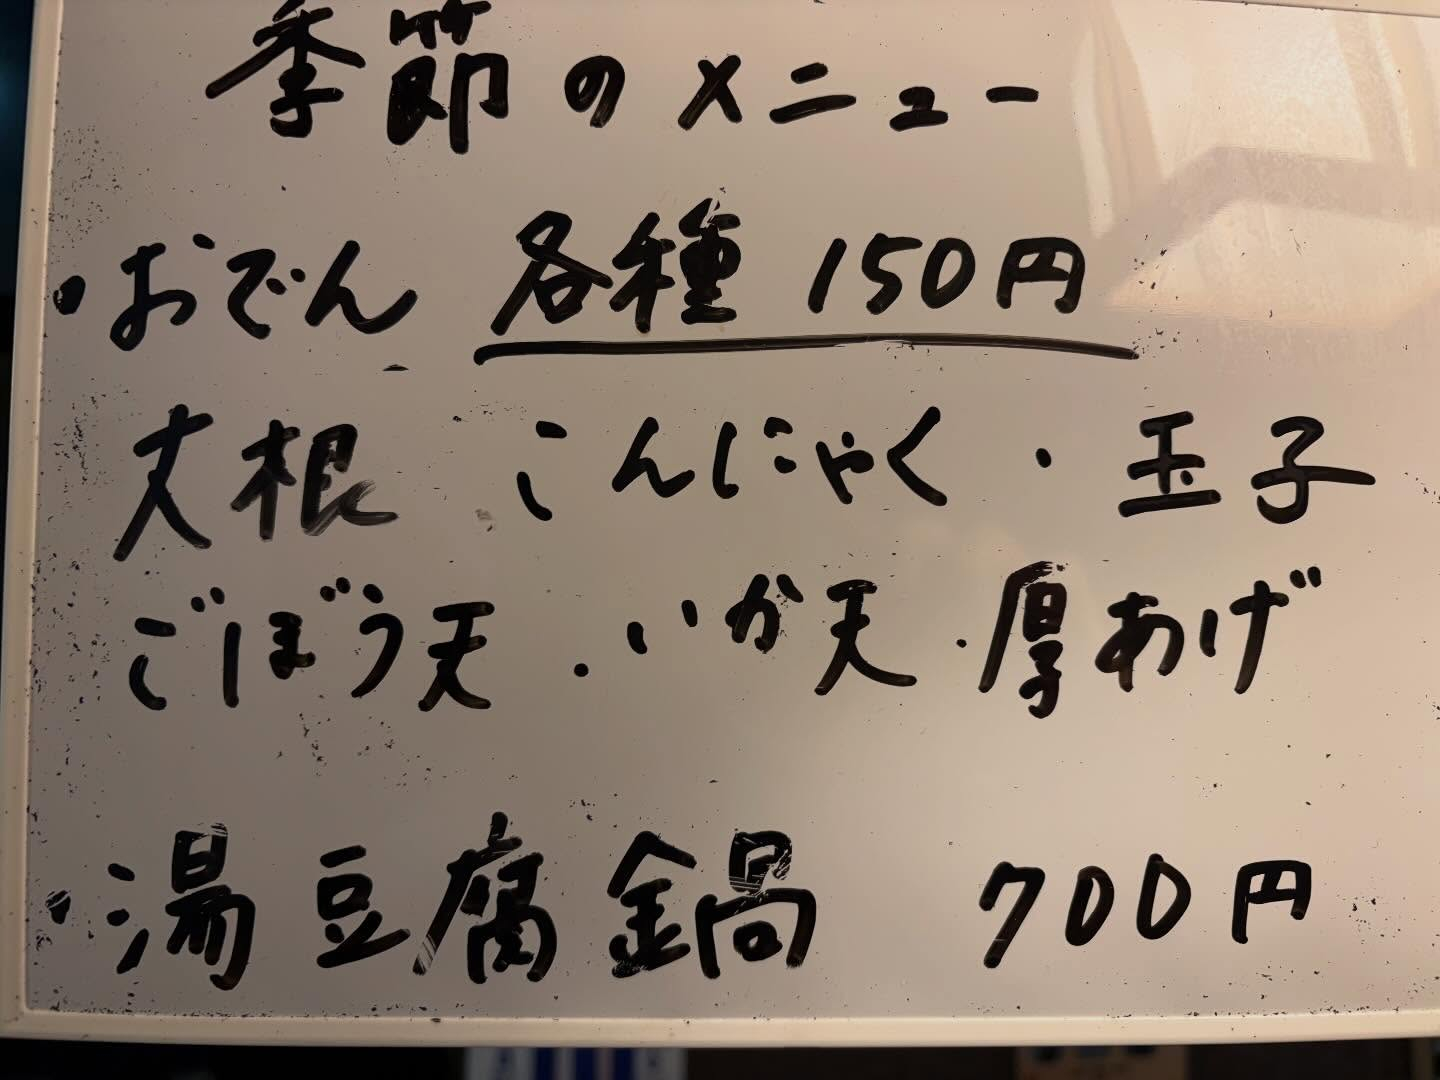 季節のメニュー
・おでん 各種 150円
大根 こんにゃく・玉子
ごぼう天・いか天・厚あげ
・湯豆腐鍋 700円